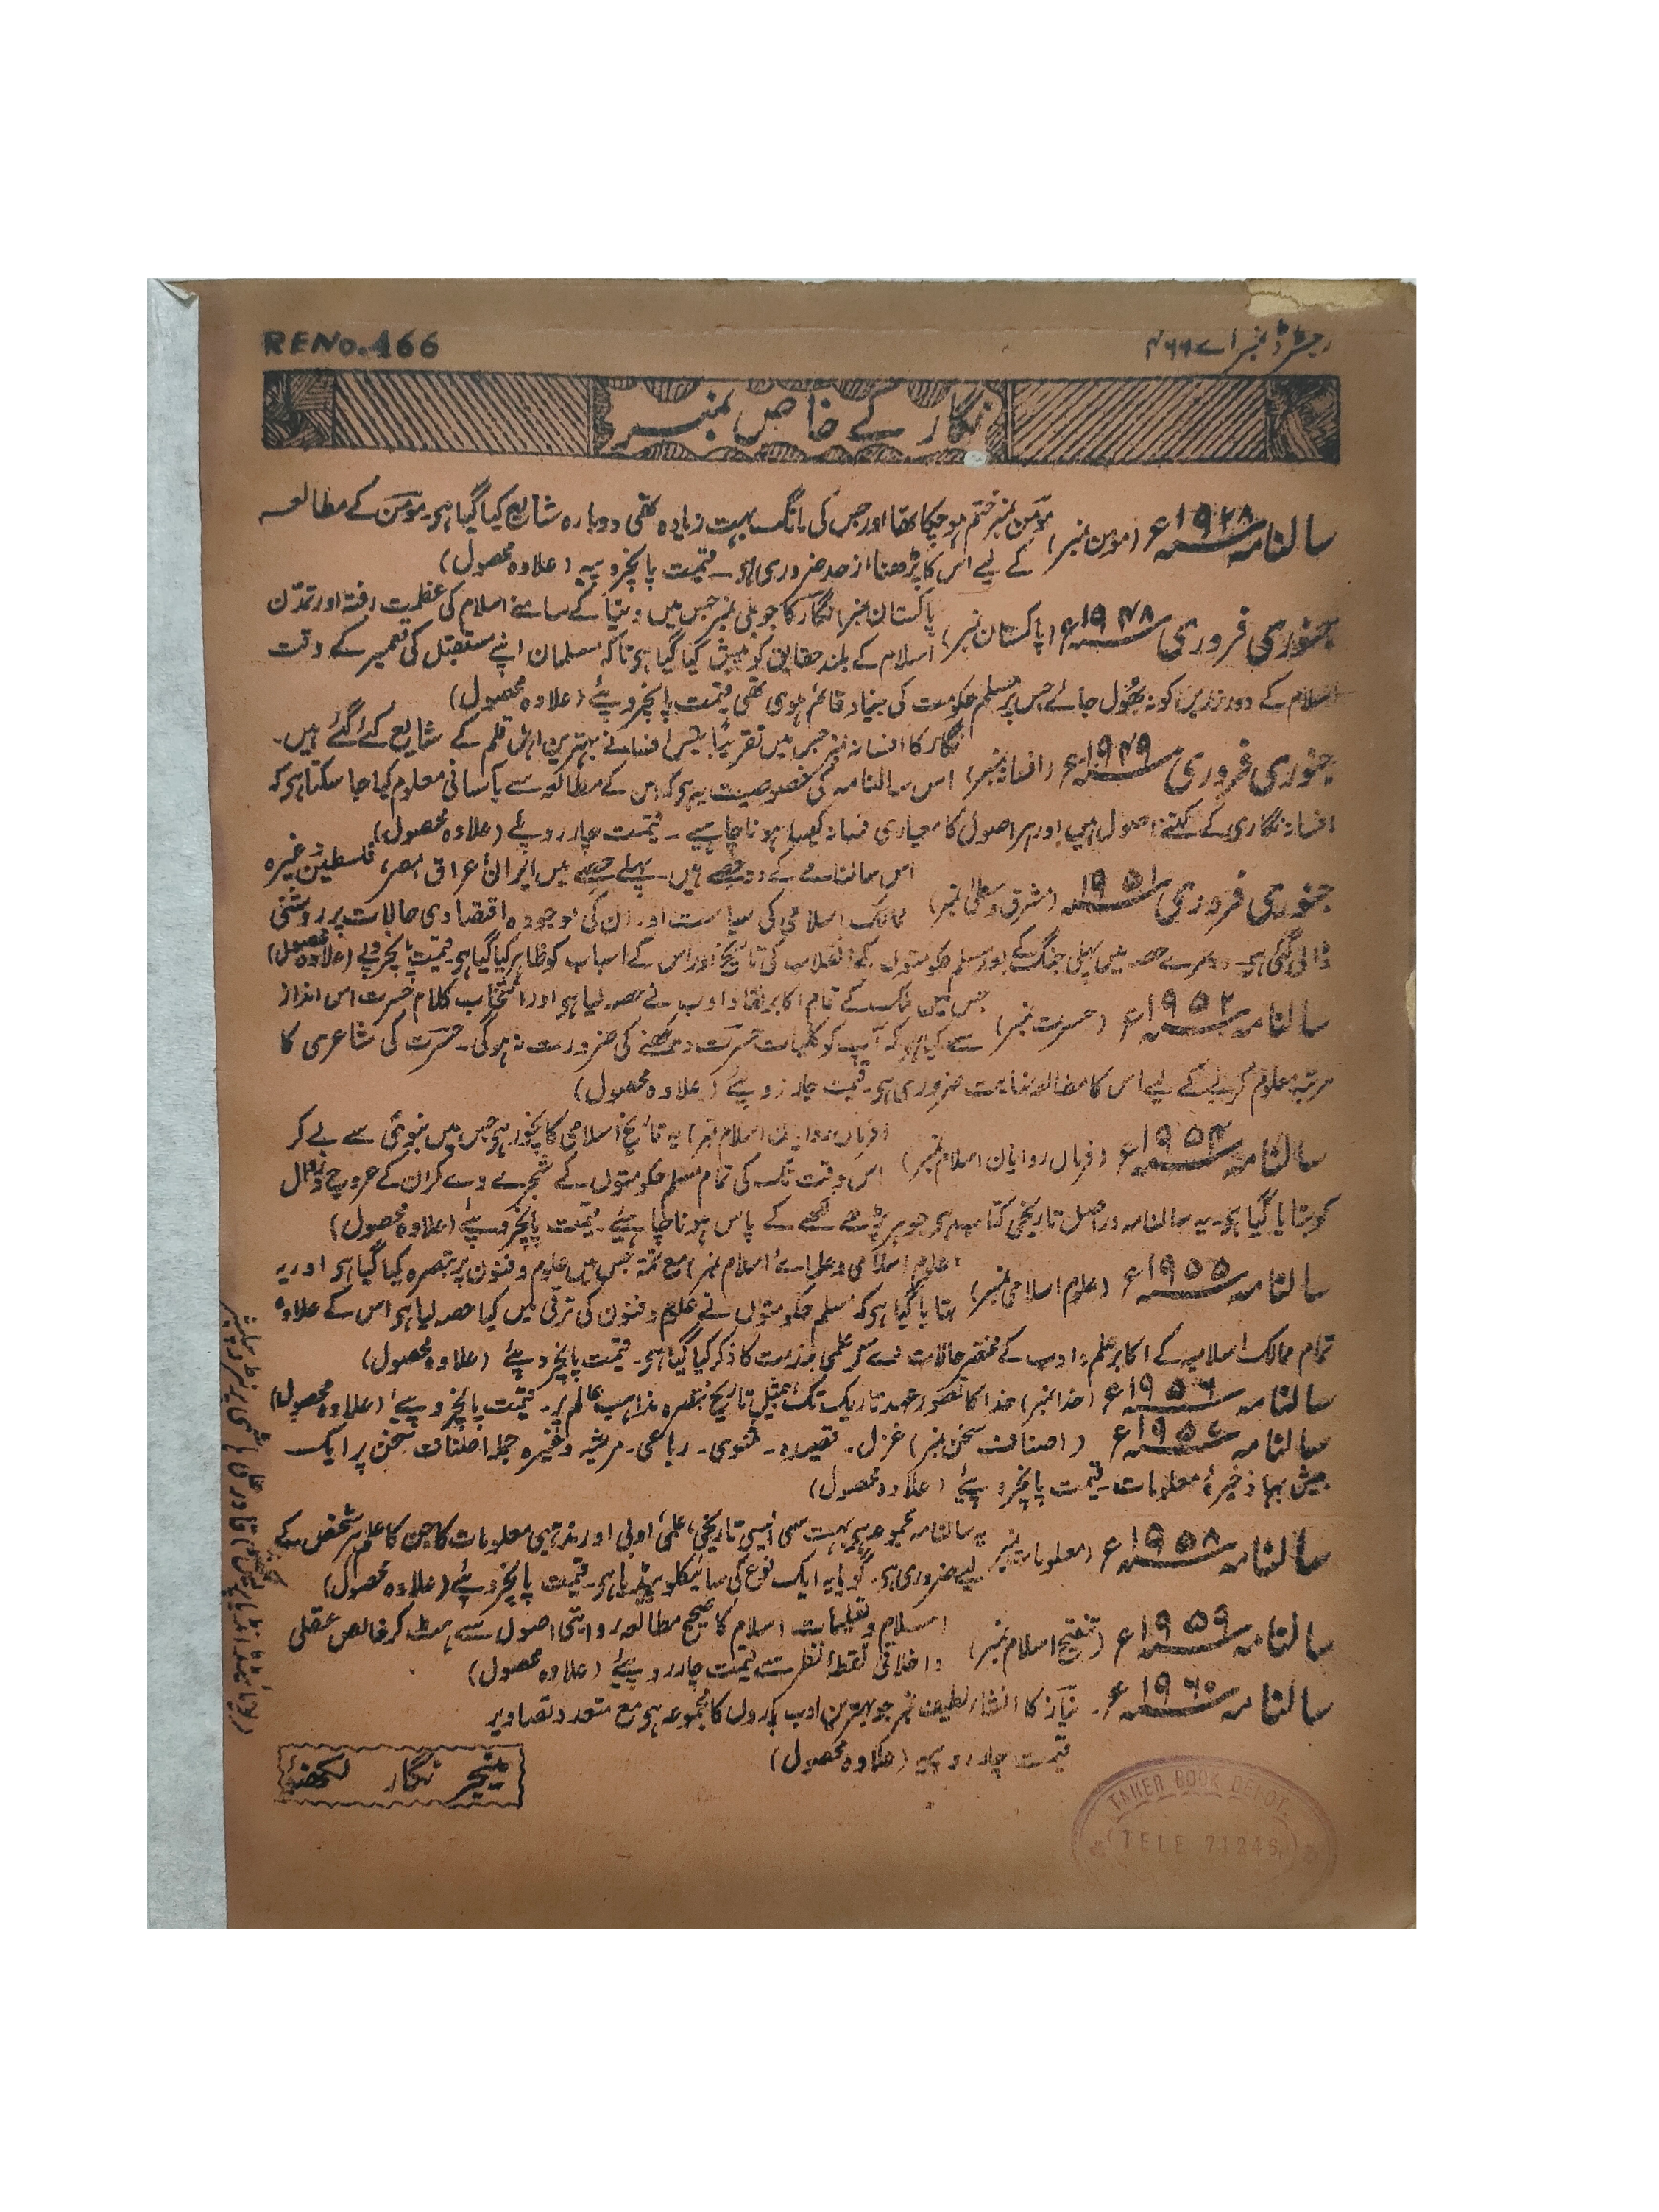 رجسٹرڈ نمبر اے ۴۶۶
RENo.466
نگار کے خاص نمبر
سالنامہ ۱۹۲۸ء (مومن نمبر) مومن نمبر ختم ہو چکا تھا اور جس کی مانگ بہت زیادہ تھی دوبارہ شایع کیا گیا ہو۔ مومن کے مطالعہ
کے لیے اس کا پڑھنا از حد ضروری ہو۔ قیمت پانچروپیہ (علاوہ محصول)
جنوری فروری ۱۹۴۸ء (پاکستان نمبر) پاکستان نمبر نگار کا جوبلی نمبر جس میں دنیا کے سامنے اسلام کی عظمت رفتہ اور تمدن
اسلام کے بلند حقایق کو پیش کیا گیا ہو تاکہ مسلمان اپنے مستقبل کی تعمیر کے وقت
اسلام کے دور زریں کو نہ بھول جائے جس پر مسلم حکومت کی بنیاد قائم ہوی تھی قیمت پانچروپئے (علاوہ محصول)
جنوری فروری ۱۹۴۹ء (افسانہ نمبر) نگار کا افسانہ نمبر جس میں تقریباً بیس افسانے بہترین اہل قلم کے شایع کئے گئے ہیں۔
اس سالنامہ کی خصوصیت یہ ہو کہ اس کے مطالعہ سے بآسانی معلوم کیا جا سکتا ہو کہ
افسانہ نگاری کے کتنے اصول ہیں اور ہر اصول کا معیاری فسانہ کیسا ہونا چاہیے۔ قیمت چار روپئے (علاوہ محصول)
جنوری فروری ۱۹۵۱ (مشرق وسطیٰ نمبر) اس سالنامے کے دو حصے ہیں۔ پہلے حصے میں ایران، عراق، مصر، فلسطین وغیرہ
ممالک اسلامی کی سیاست اور ان کی موجودہ اقتصادی حالات پر روشنی
ڈالی گئی ہو۔ دوسرے حصہ میں پہلی جنگ کے بعد مسلم حکومتوں کے انقلاب کی تاریخ اور اس کے اسباب کو ظاہر کیا گیا ہو۔ قیمت پانچروپے (علاوہ محصول)
سالنامہ ۱۹۵۲ء (حسرت نمبر) جس میں ملک کے تمام اکابر نقاد ادب نے حصہ لیا ہو اور انتخاب کلام حسرت اس انداز
سے کیا ہو کہ آپ کو کلیات حسرت دیکھنے کی ضرورت نہ ہوگی۔ حسرت کی شاعری کا
مرتبہ معلوم کرنے کے لیے اس کا مطالعہ نہایت ضروری ہو۔ قیمت چار روپئے (علاوہ محصول)
سالنامہ ۱۹۵۴ء (فرماں روایان اسلام نمبر) (فرماں روایان اسلام نمبر) یہ تاریخ اسلامی کا نچوڑ ہو جس میں نبوی سے لے کر
اس وقت تک کی تمام مسلم حکومتوں کے شجرے دے کر ان کے عروج و زوال
کو بتایا گیا ہو۔ یہ سالنامہ دراصل تاریخی کتاب ہو جو ہر پڑھے لکھے کے پاس ہونا چاہیئے۔ قیمت پانچروپئے (علاوہ محصول)
سالنامہ ۱۹۵۵ء (علوم اسلامی نمبر) (علوم اسلامی و علمائے اسلام نمبر) مع تتمہ جس میں علوم و فنون پر تبصرہ کیا گیا ہو اور یہ
بتایا گیا ہو کہ مسلم حکومتوں نے علوم و فنون کی ترقی میں کیا حصہ لیا ہو اس کے علاوہ
تمام ممالک اسلامیہ کے اکابر علم و ادب کے مختصر حالات دے کر علمی خدمت کا ذکر کیا گیا ہو۔ قیمت پانچروپئے (علاوہ محصول)
سالنامہ ۱۹۵۶ء (خدا نمبر) خدا کا تصور عہد تاریک تک بمثیل تاریخ تبصرہ مذاہب عالم پر۔ قیمت پانچروپئے (علاوہ محصول)
سالنامہ ۱۹۵۷ء (اصناف سخن نمبر) غزل۔ قصیدہ۔ مثنوی۔ رباعی۔ مرثیہ وغیرہ جملہ اصناف سخن پر ایک
بیش بہا ذخیرۂ معلومات۔ قیمت پانچروپئے (علاوہ محصول)
سالنامہ ۱۹۵۸ء (معلومات نمبر) یہ سالنامہ مجموعہ ہو بہت سی ایسی تاریخی، علمی، ادبی اور مذہبی معلومات کا جن کا علم ہر شخص کے
لیے ضروری ہو۔ گویا یہ ایک نوع کی سائیکلو پیڈیا ہو۔ قیمت پانچروپئے (علاوہ محصول)
سالنامہ ۱۹۵۹ء (تنقیح اسلام نمبر) اسلام و تعلیمات اسلام کا صحیح مطالعہ روایتی اصول سے ہٹ کر خالص عقلی
و اخلاقی نقطۂ نظر سے قیمت چار روپئے (علاوہ محصول)
سالنامہ ۱۹۶۰ء۔ نیاز کا انشاء لطیف نمبر جو بہترین ادب پاروں کا مجموعہ ہو مع متعدد تصاویر
قیمت چار روپیہ (علاوہ محصول)
منیجر نگار لکھنؤ
TAHER BOOK DEPOT.
(TELE 71246)